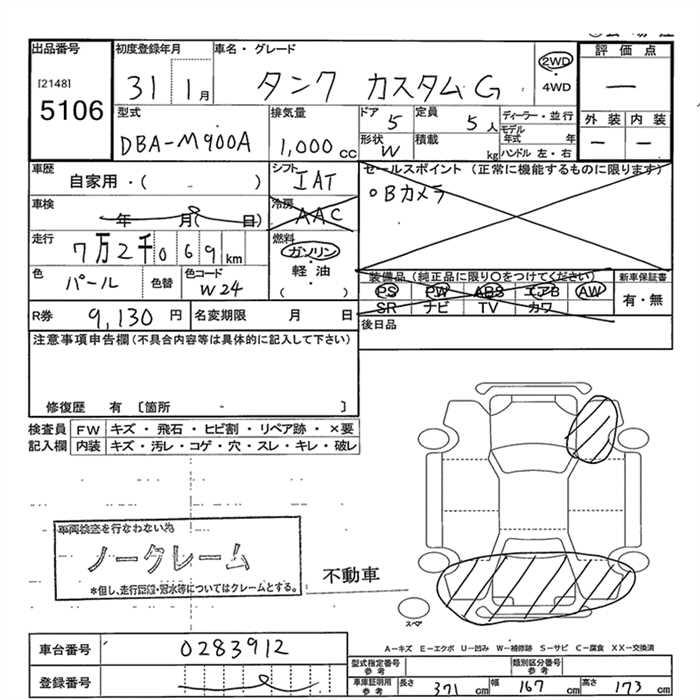 出品番号
[2148]
5106
初度登録年月
31 1月
車名・グレード
タンク カスタムG
2WD
・
4WD
評価点
―
外装 内装
― ―
型式
DBA-M900A
排気量
1,000 cc
ドア 5
定員 5人
形状 W
積載 kg
ディーラー・並行
モデル年式 年
ハンドル 左・右
車歴
自家用・( )
シフト
IAT
セールスポイント (正常に機能するものに限ります)
○Bカメラ
車検
年 月( 日)
冷房
AAC
走行
7万2千069km
燃料
ガソリン
・
軽油
・
( )
色
パール
色替
色コード
W24
装備品 (純正品に限り○をつけてください)
PS PW ABS エアB AW
SR ナビ TV カワ
新車保証書
有・無
R券 9,130円
名変期限 月 日
後日品
注意事項申告欄(不具合内容等は具体的に記入して下さい)
修復歴 有 [箇所 ・ ]
検査員記入欄
FW キズ・飛石・ヒビ割・リペア跡・×要
内装 キズ・汚レ・コゲ・穴・スレ・キレ・破レ
車両検査を行なわない為
ノークレーム
*但し、走行距離・冠水等についてはクレームとする。
不動車
スペア
A-キズ E-エクボ U-凹み W-補修跡 S-サビ C-腐食 XX-交換済
車台番号 0283912
登録番号
型式指定番号
参考
類別区分番号
参考
車庫証明用
参考
長さ 371cm
幅 167cm
高さ 173cm